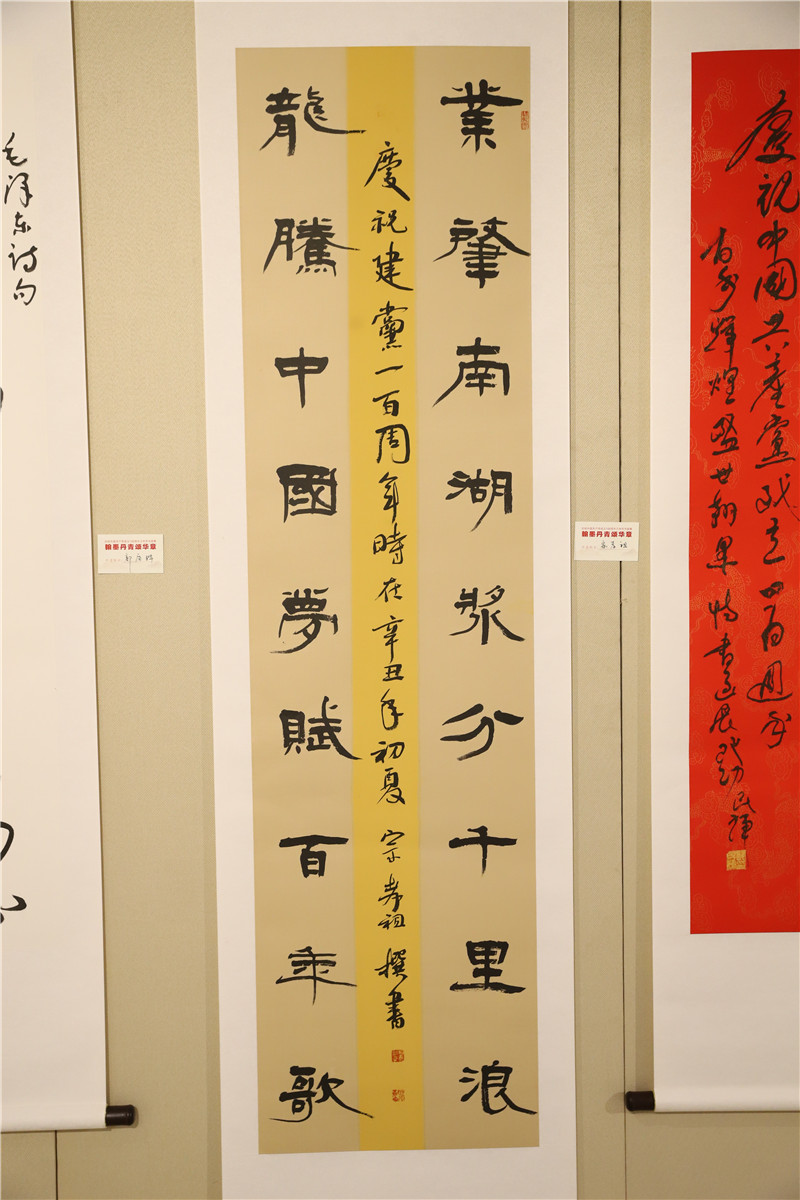 慶祝中國共產黨成立一百週年
翰墨丹青颂华章
宗孝祖
業肇南湖桨分千里浪
慶祝建黨一百周年時在辛丑年初夏 宗孝祖撰書
龍騰中國夢賦百年歌
翰墨丹青颂华章
毛泽东诗句